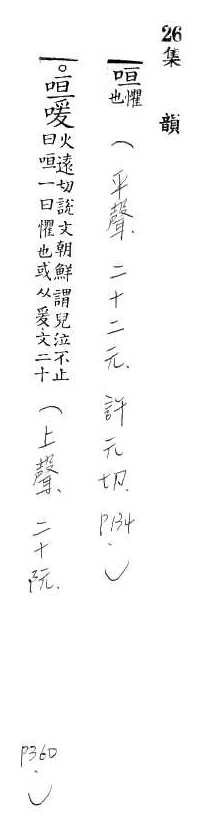 26 集韻
咺懼也(平聲.二十二元.許元切.P134.)
咺喛火遠切說文朝鮮謂兒泣不止曰咺一曰懼也或从爰文二十(上聲.二十阮.P360.)